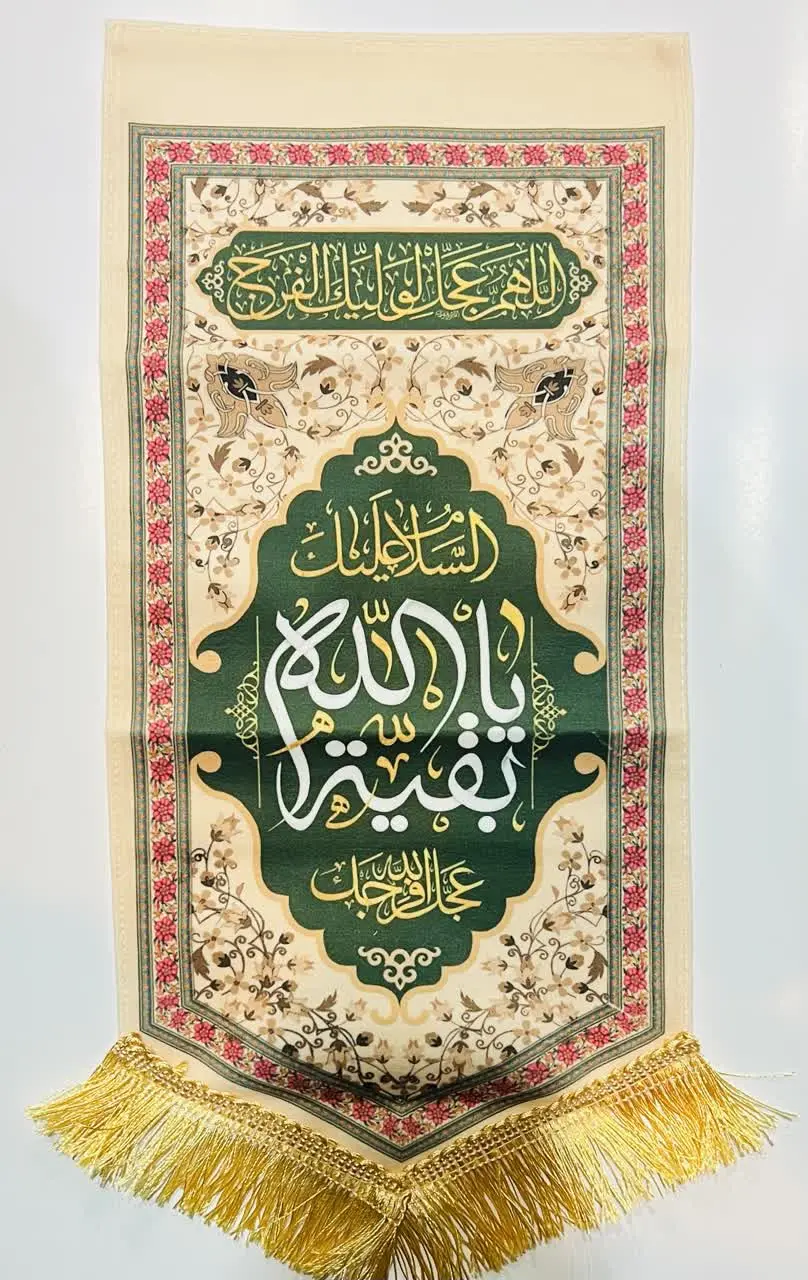 اللّهُمَّ عَجِّل لِوَلیِّكَ الفَرَج
السَّلامُ عَلَیكَ
یا بقیة الله
عَجَّلَ اللهُ فَرَجَك